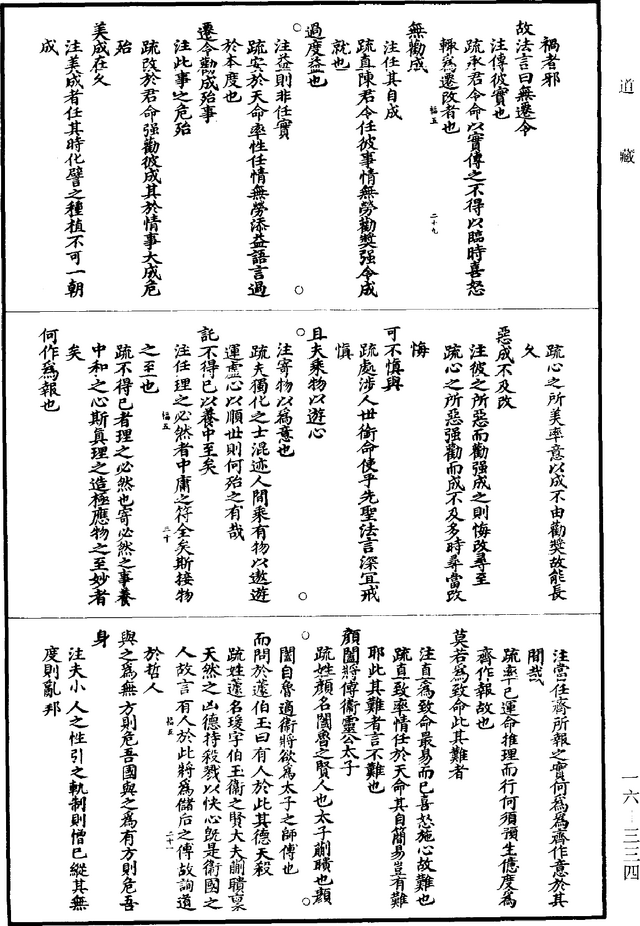 道藏
禍者邪
故法言曰無遷令
注傳彼實也
疏承君令命以實傳之不得以臨時喜怒
輒為遷改者也
福五
二十九
無勸成
注任其自成
疏直陳君令任彼事情無勞勸獎强令成
就也
過度益也
注益則非任實
疏安於天命率性任情無勞添益語言過
於本度也
遷令勸成殆事
注此事之危殆
疏改於君命强勸彼成其於情事大成危
殆
美成在久
注美成者任其時化譬之種植不可一朝
成
疏心之所美率意以成不由勸獎故能長
久
惡成不及改
注彼之所惡而勸强成之則悔改尋至
疏心之所惡强勸而成不及多時尋當改
悔
可不慎與
疏處涉人世銜命使乎先聖法言深宜戒
慎
且夫乘物以遊心
注寄物以為意也
疏夫獨化之士混迹人間乘有物以遨遊
運虛心以順世則何殆之有哉
託不得已以養中至矣
注任理之必然者中庸之符全矣斯接物
之至也
福五
三十
疏不得已者理之必然也寄必然之事養
中和之心斯真理之造極應物之至妙者
矣
何作為報也
注當任齊所報之實何為為齊作意於其
間哉
疏率己運命推理而行何須預生億度為
齊作報故也
莫若為致命此其難者
注直為致命最易而已喜怒施心故難也
疏直致率情任於天命其自簡易豈有難
耶此其難者言不難也
顏闔將傅衛靈公太子
疏姓顏名闔魯之賢人也太子蒯聵也顏
闔自魯適衛將欲為太子之師傅也
而問於蘧伯玉曰有人於此其德天殺
疏姓蘧名瑗字伯玉衛之賢大夫蒯聵稟
天然之凶德持殺戮以快心既是衛國之
人故言有人於此將為儲后之傅故詢道
福五
三十一
於哲人
與之為無方則危吾國與之為有方則危吾
身
注夫小人之性引之軌制則憎己縱其無
度則亂邦
一六—三三四